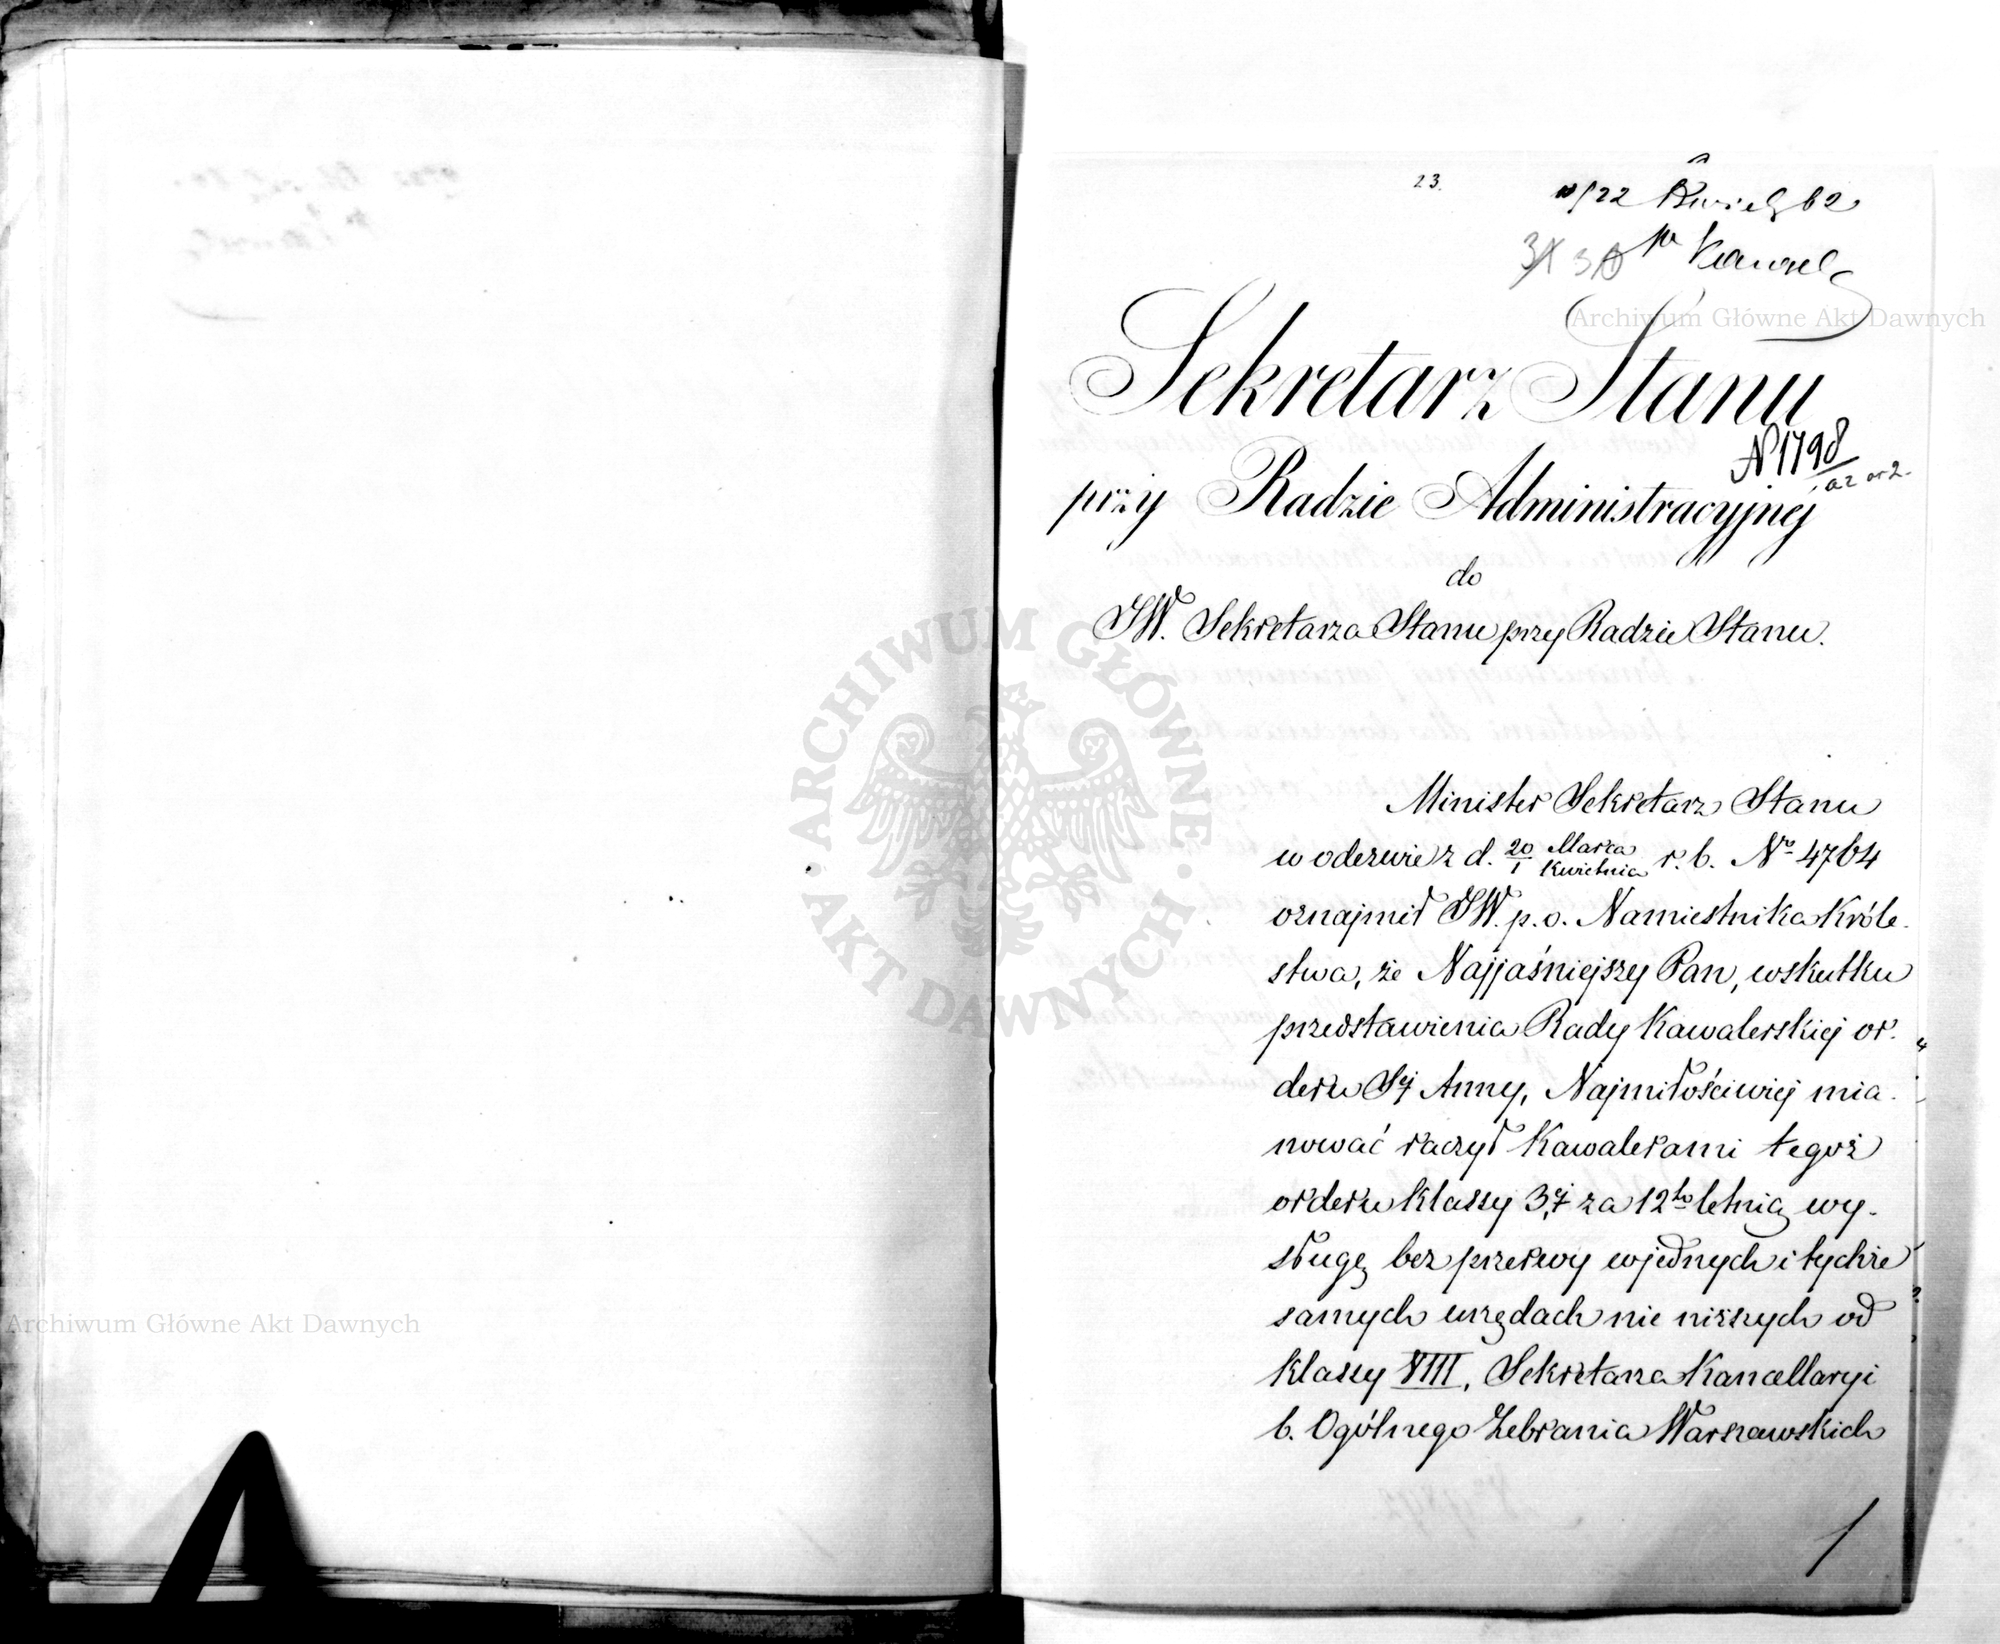 23.
10/22 Kwiet 62
Sekretarz Stanu
N 1798
przy Radzie Administracyjnej
do
JW. Sekretarza Stanu przy Radzie Stanu.
Minister Sekretarz Stanu
w odezwie z d. 20 Marca / 1 Kwietnia r. b. No 4764
oznajmił JW. p. o. Namiestnika Króle-
stwa, że Najjaśniejszy Pan, wskutku
przedstawienia Rady Kawalerskiej or-
deru Sj Anny, Najmiłościwiej mia-
nować raczył Kawalerami tegoż
orderu klassy 3ej za 12to letnią wy-
sługę bez przerwy w jednych i tychże
samych urzędach nie niższych od
klassy VIII, Sekretarza Kancellaryi
b. Ogólnego Zebrania Warszawskich
Archiwum Główne Akt Dawnych
Archiwum Główne Akt Dawnych
ARCHIWUM GŁÓWNE · AKT DAWNYCH ·